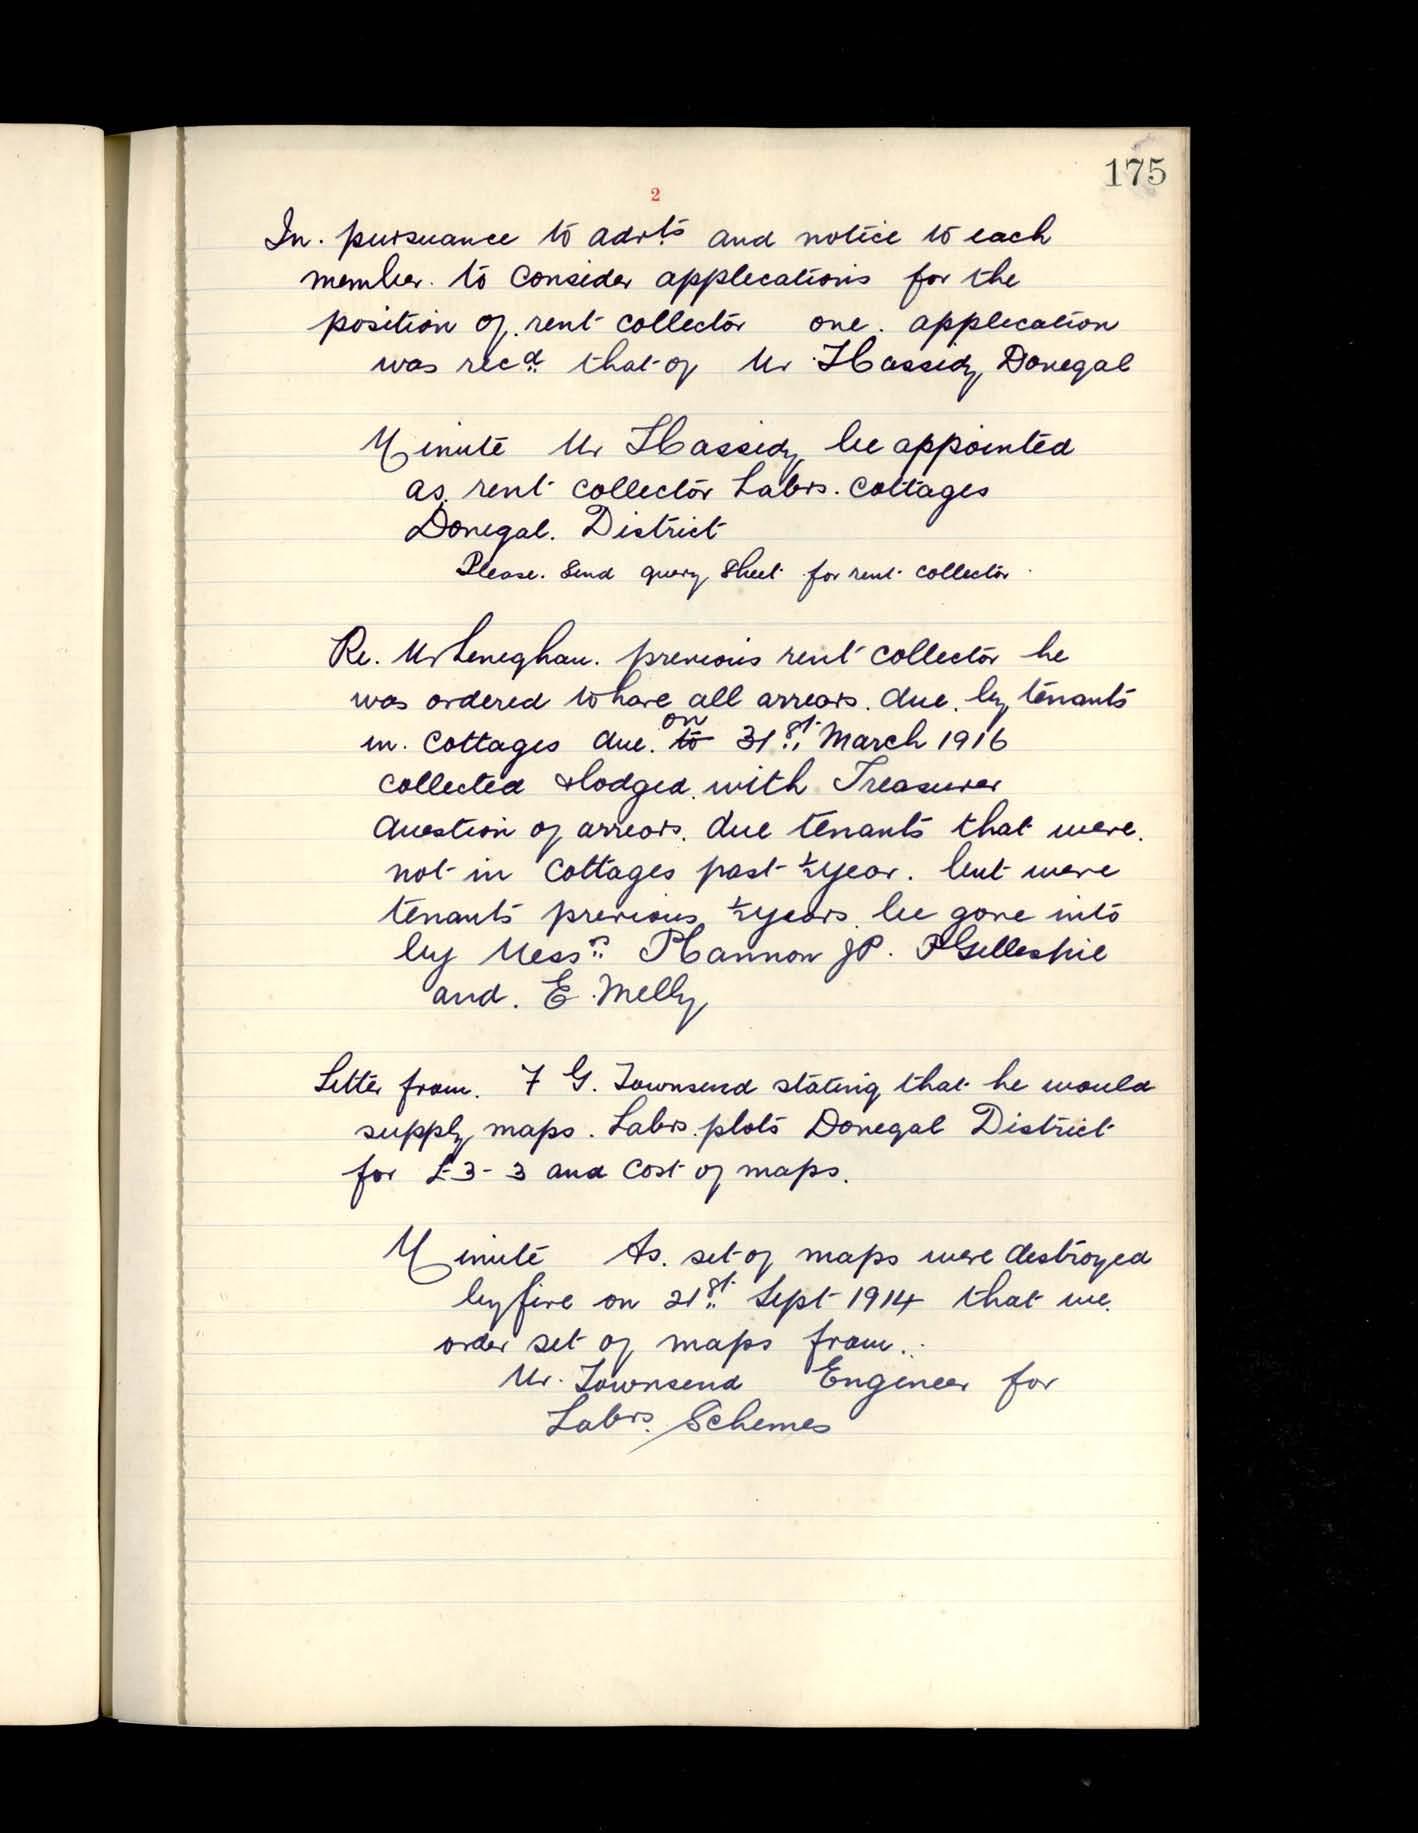 175
2
In. pursuance to advts and notice to each
member. to consider applications for the
position of. rent collector one. application
was recd that of Mr T Cassidy Donegal
Minute Mr T Cassidy be appointed
as. rent collector Labrs. Cottages
Donegal. District
Please. Send query Sheet for rent collector.
Re. Mr Heneghan. previous rent collector he
was ordered to have all arrears. due. by tenants
on
in. Cottages due. to 31st March 1916
collected & lodged. with Treasurer
Question of arrears. due tenants that were.
not in Cottages past ½ year. but were
tenants previous ½ years. be gone into
by Messrs P Gannon JP. P Gillespie
and. E. Melly
Letter from. F G. Townsend stating that he would
supply maps. Labrs. plots Donegal District
for £3-3 and cost of maps.
Minute As. set of maps were destroyed
by fire on 21st Sept 1914 that we.
order set of maps from.
Mr. Townsend Engineer for
Labrs. Schemes